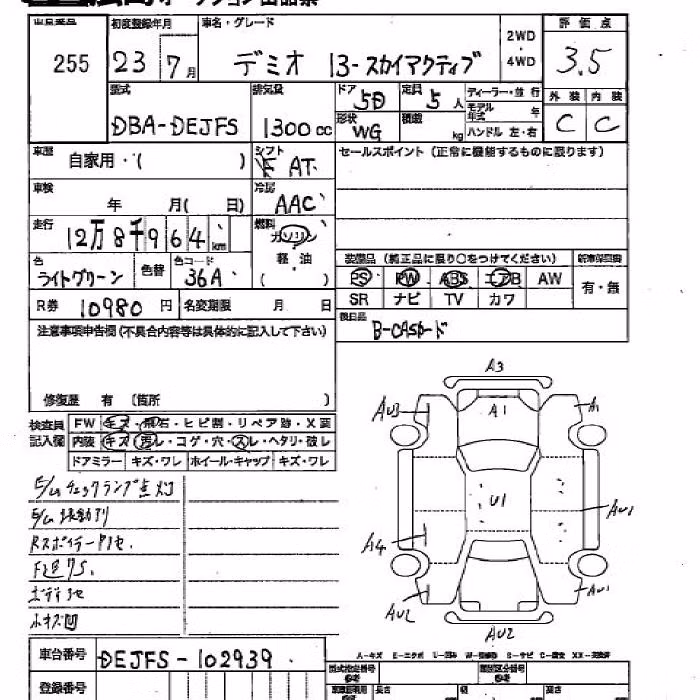 出品番号 初度登録年月 車名・グレード 2WD・4WD 評価点
255 23 7月 デミオ 13-スカイアクティブ 3.5
型式 排気量 ドア 5D 定員 5人 ディーラー・並行 外装 内装
DBA-DEJFS 1300cc 形状 WG 積載 kg モデル年式 年 ハンドル 左・右 C C
車歴 自家用・( ) シフト F AT セールスポイント (正常に機能するものに限ります)
車検 年 月( 日) 冷房 AAC
走行 12万8千964km 燃料 ガソリン 軽油 ( )
色 ライトグリーン 色替 色コード 36A
装備品 (純正品に限り○をつけてください) 新車保証書
PS PW ABS エアB AW 有・無
SR ナビ TV カワ
R券 10980円 名変期限 月 日
後日品 B-CASカード
注意事項申告欄(不具合内容等は具体的に記入して下さい)
修復歴 有 (箇所 )
検査員記入欄 FW キズ・飛石・ヒビ割・リペア跡・X要
内装 キズ・汚レ・コゲ・穴・スレ・ヘタリ・破レ
ドアミラー キズ・ワレ ホイール・キャップ キズ・ワレ
E/Mチェックランプ点灯
E/M振動有り
ボディ
A3
AU3 A1 A1
U1 AU1
A4
AU2 AU1
AU2
車台番号 DEJFS-102939
登録番号
長さ 幅 高さ